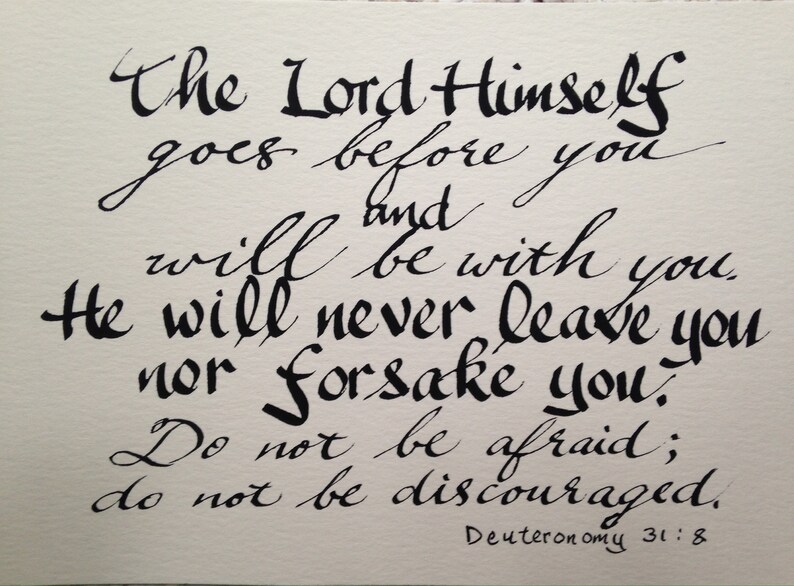 The Lord Himself
goes before you
and
will be with you.
He will never leave you
nor forsake you.
Do not be afraid;
do not be discouraged.
Deuteronomy 31:8